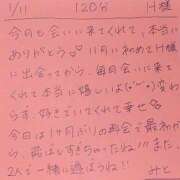 1/11 120分 H様
今日も会いに来てくれて、本当に
ありがとう♡ 11月に初めてH様
に出会ってから、毎月会いに来て
くれて本当に嬉しいよ(˘︶˘) 変わ
らず、好きでいてくれて幸せ
今日は1ヶ月ぶりの再会で最初か
ら、飛ばしすぎちゃったね!!! また、
2人で一緒に遊ぼうね!!
みと